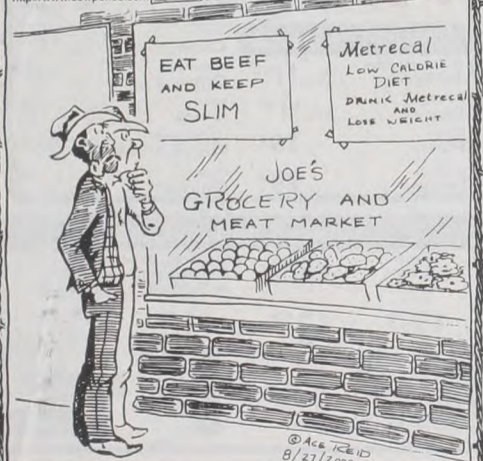 EAT BEEF
AND KEEP
SLIM
Metrecal
LOW CALORIE
DIET
DRINK Metrecal
AND
LOSE WEIGHT
JOE'S
GROCERY AND
MEAT MARKET
© ACE REID